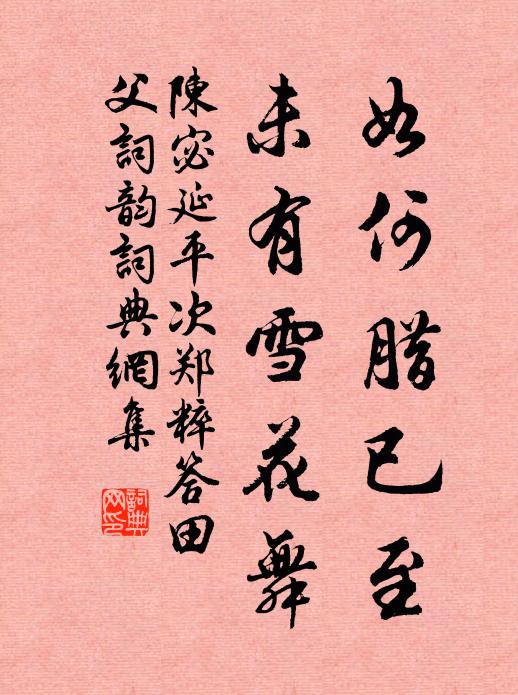 如何腊已至
未有雪花舞
陳宓延平次郑粹答田
父詞韵詞典網集
詞典网印